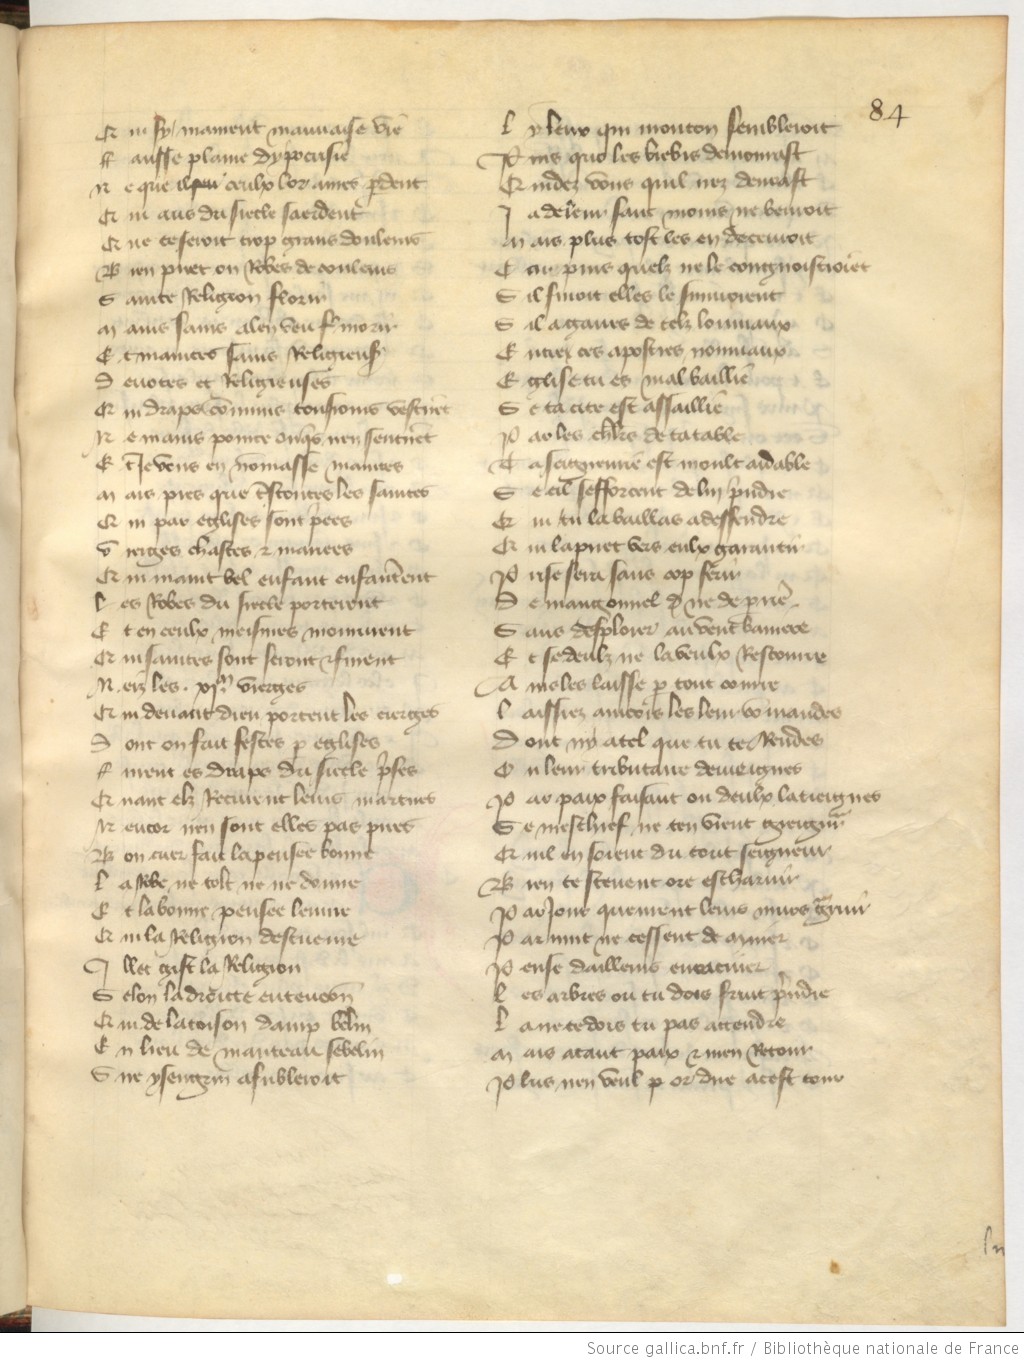 84
Qui si mainent mauvaise vie
Faulse plaine dypocrisie
Ne que ceulx lor ames perdent
Qui aus du siecle saerdent
Car ce seroit trop grans douleurs
Bien puet on Robes de couleurs
Sainte Religion florir
Mains sains a len veu morir
Et maintes sains Religieuses
Devotes et Religieuses
Qui draps communs tousiours vestirent
Ne mains pource onques nen sentirent
Et ie vous en nommasse maintes
Mais pres que trestoutes les saintes
Qui par eglises sont priees
Vierges chastes et mariees
Qui maint bel enfant enfanterent
Les Robes du siecle porterent
Et en ceulx meismes moururent
Qui saintes sont seront et furent
Neiz les .xi.m vierges
Qui devant dieu portent les cierges
Dont on fait festes par eglises
Furent es draps du siecle prises
Quant elz Recurent leurs martires
Nencor nen sont elles pas pires
Bon cuer fait la pensee bonne
La Robe ne tolt ne ne donne
Et la bonne pensee leuvre
Qui la Religion descueuvre
Illec gist la Religion
Selon la droicte entencion
Qui de la toison damp belin
En lieu de manteau sebelin
Sire ysengrin afubleroit
Ly leux qui mouton sembleroit
Puis quo les brebis demorast
Cuidez vous quil nez devorast
Ja de leur sanc moins ne bevroit
Mais plus tost les en decevroit
Car puis quelz ne le congnoistroient
Sil fuioit elles le suivroient
Sil a gaires de telz louviaux
Entrez ces apostres nouviaux
Eglise tu es mal baillie
Se ta cite est assaillie
Par les chlrs de ta table
Ta seigneurie est moult aidable
Se cil sefforcent de lui prendre
Qui tu la baillas a deffendre
Qui la puet vers eulx garantir
Prise sera sans cop ferir
De mangonnel ne de
Sans desploier au vent baniere
Et se deulz ne la veulx Rescourre
Ains les laisse par tout courre
Laissiez aincois les leur commandes
Dont ny a tel que tu te Rendes
On leur tributaire deveignes
Par paix faisant ou deulx la tieignes
Se meschief ne ten vient greigneur
Quil en soient du tout seigneur
Bien te scevent ore escharnir
Par iour queurent leurs murs garnir
Par nuit ne cessent de miner
Pense dailleurs enraciner
Les arbres ou tu dois fruit prendre
La ne te dois tu pas attendre
Mais atant paix et men Retour
Plus nen veul par or dire a cest tour